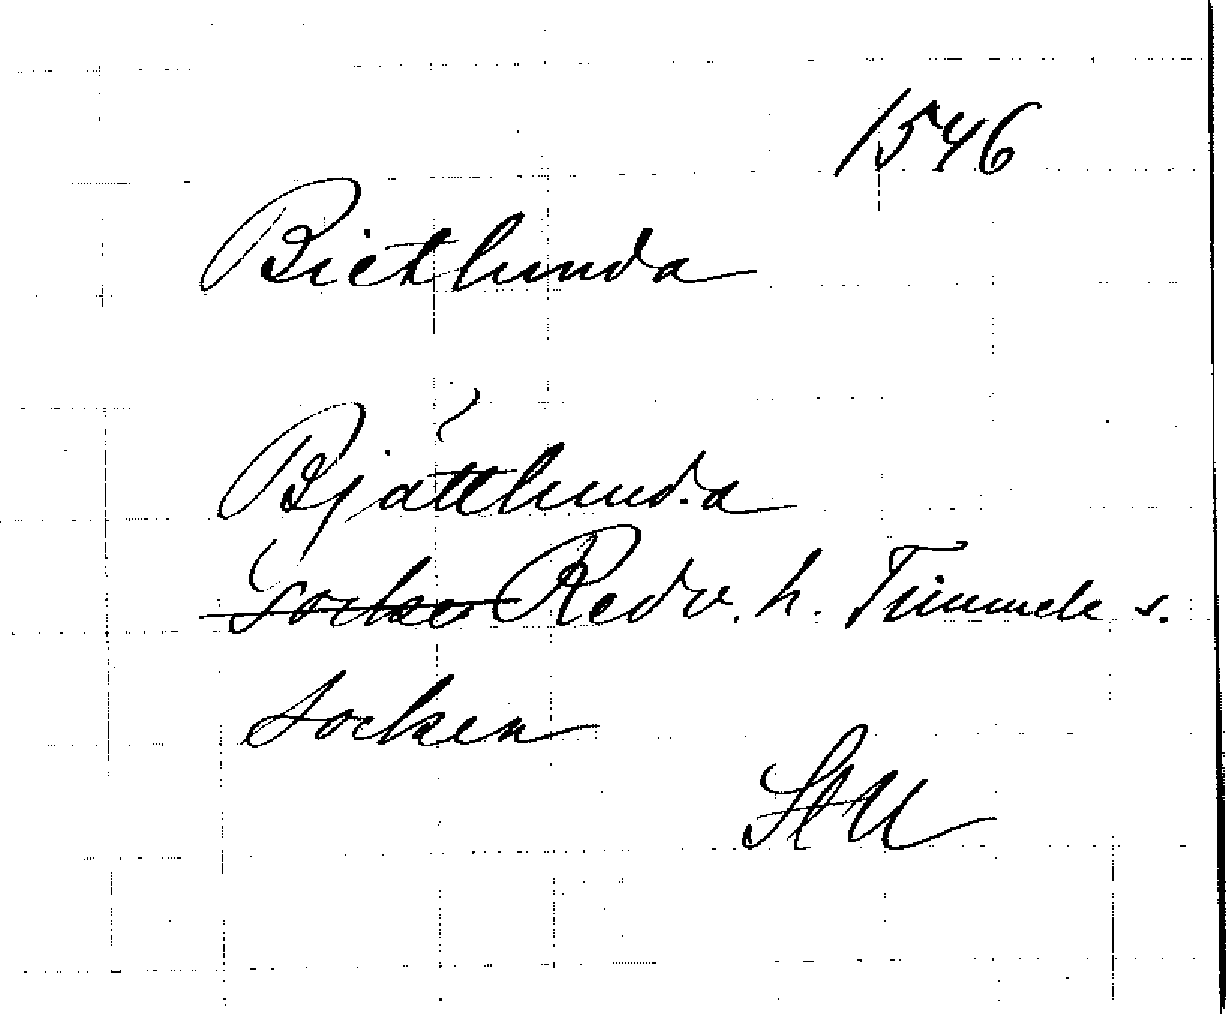 1546
Bietlunda
Bjättlunda
Socken Redv. h. Timmele s.
socken
StU